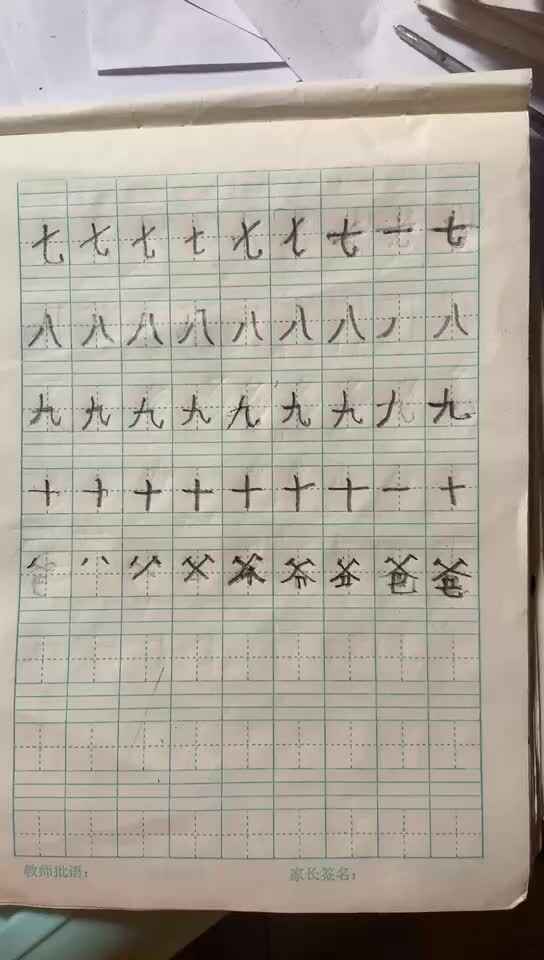 七七七七七七七一七
八八八八八八八丿八
九九九九九九九九九
十十十十十十十一十
爸
教师批语： 家长签名：